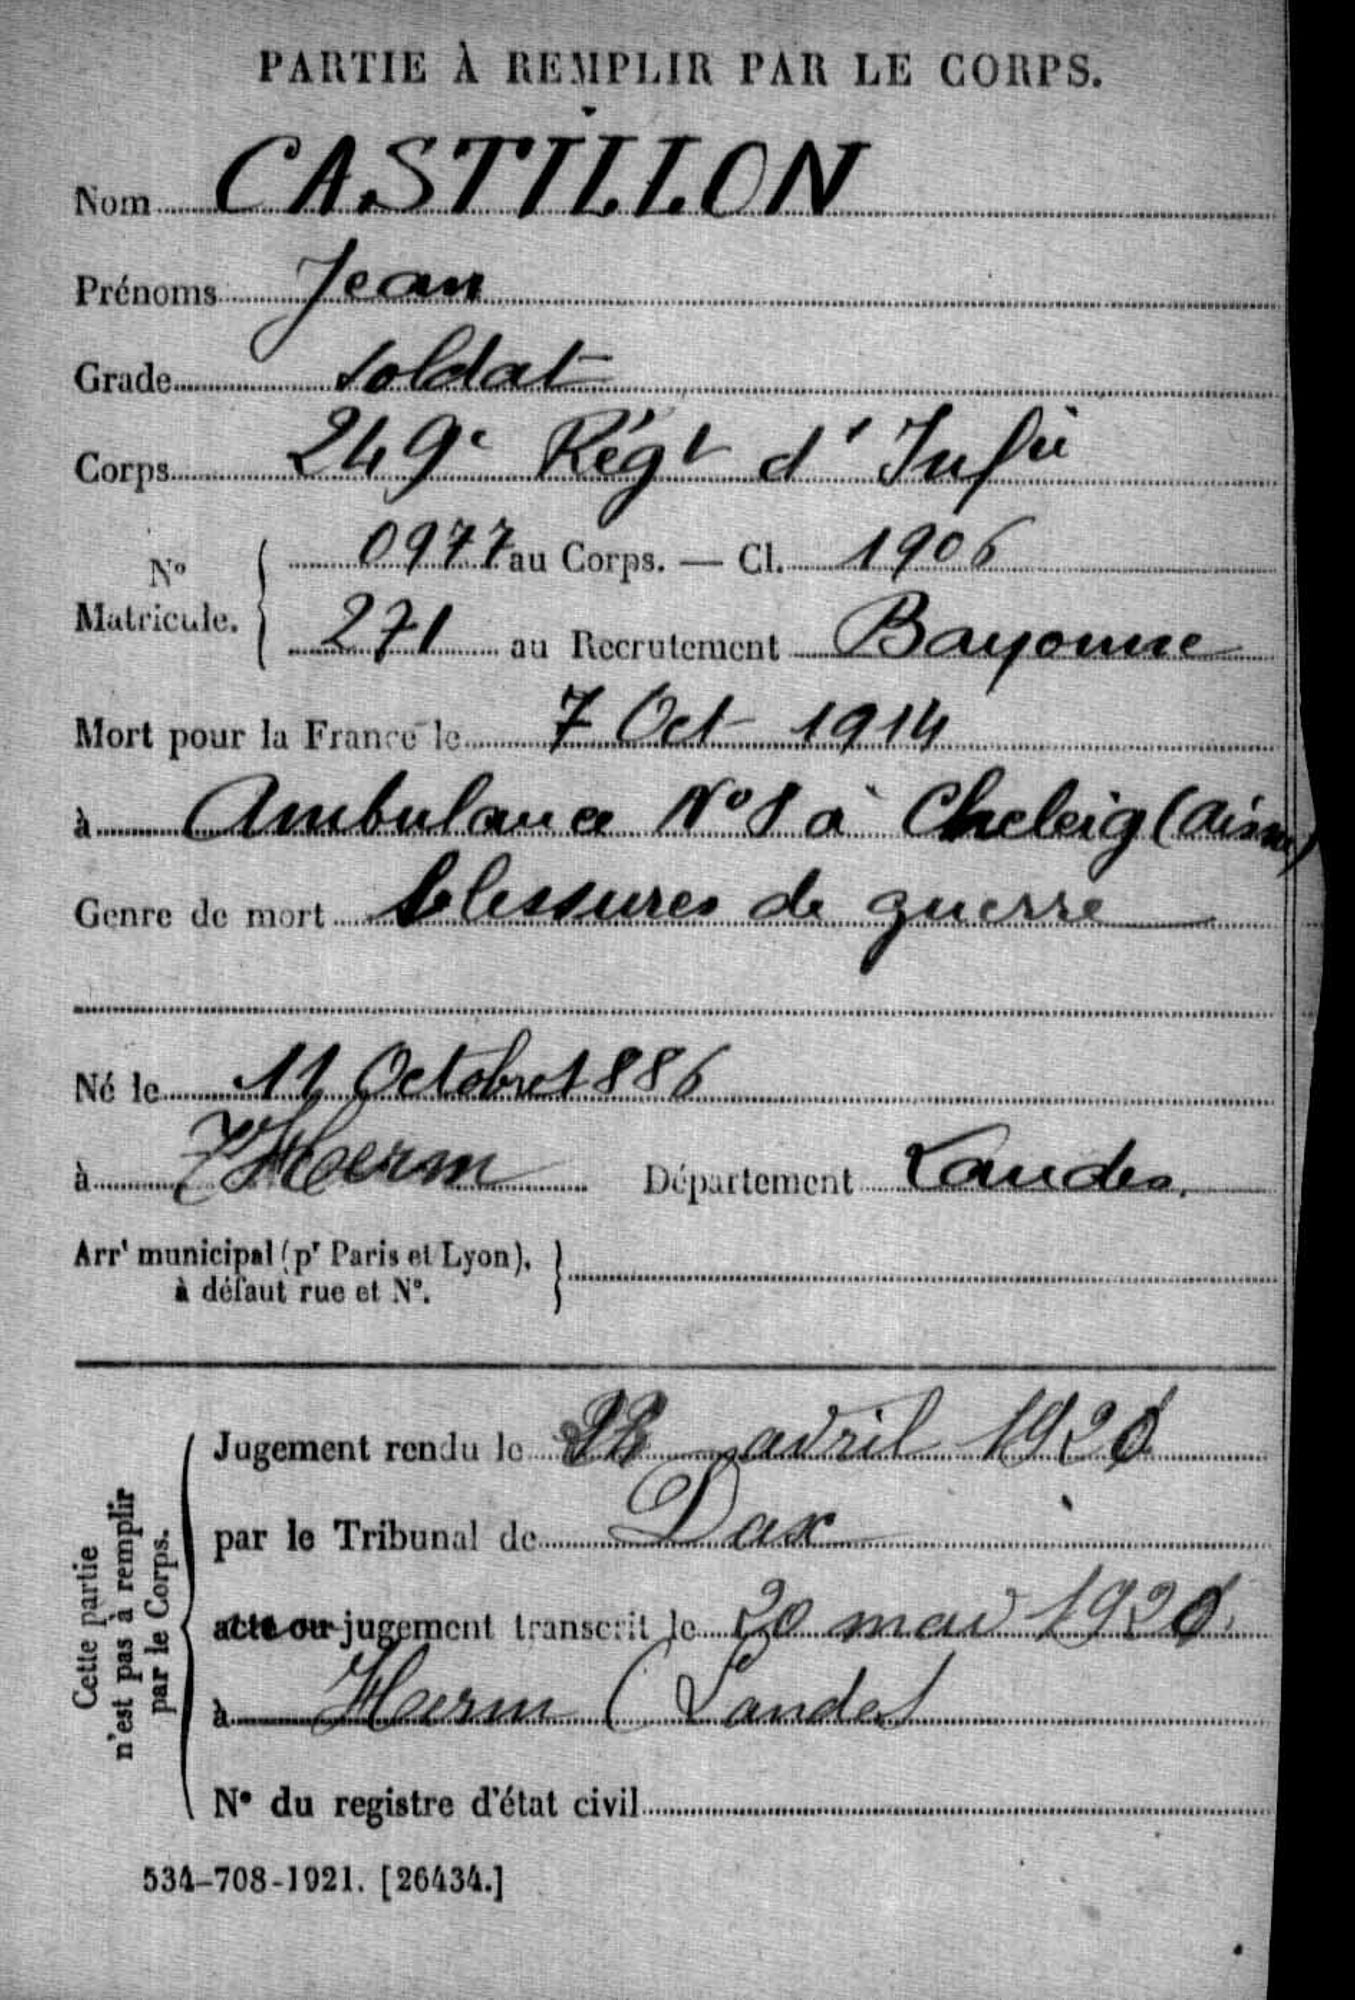 PARTIE À REMPLIR PAR LE CORPS.
Nom CASTILLON
Prénoms Jean
Grade soldat
Corps 249e Régt d'Infie
No Matricule. { 0977 au Corps. — Cl. 1906
271 au Recrutement Bayonne
Mort pour la France le 7 Oct 1914
à Ambulance No 8 à Cheleig (Aisne)
Genre de mort blessures de guerre
Né le 11 Octobre 1886
à Herm Département Landes.
Arrt municipal (pr Paris et Lyon), à défaut rue et No. }
Cette partie n'est pas à remplir par le Corps.
Jugement rendu le avril 1920
par le Tribunal de Dax
acte ou jugement transcrit le 20 mai 1920
à Herm (Landes
No du registre d'état civil
534-708-1921. [26434.]